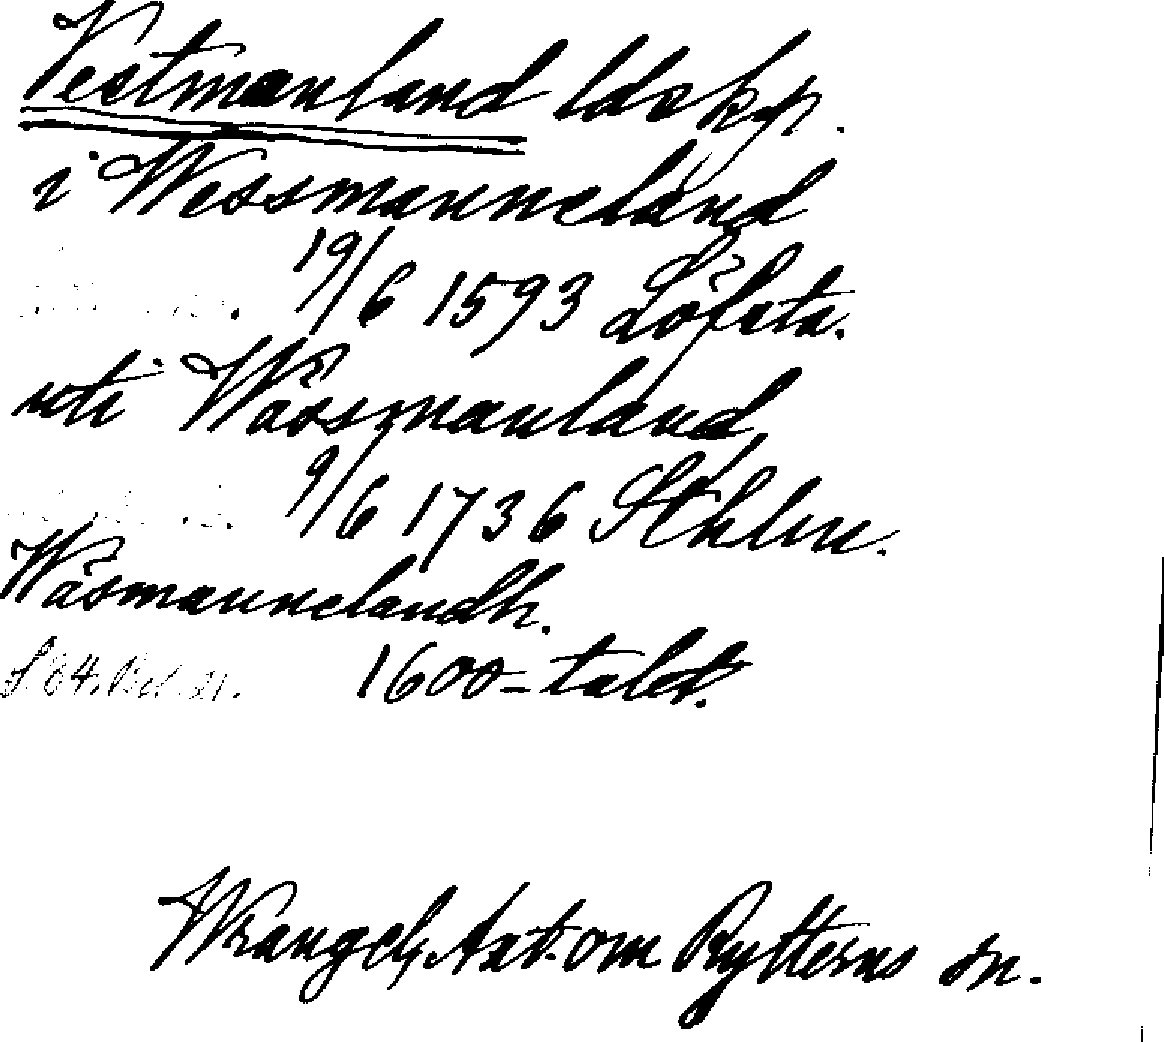 Vestmanland ldskp.
i Wessmanneland
19/6 1593 Löfsta.
uti Wäsmanland
9/6 1736 Sthlm.
Wäsmannelandh.
1600-talet.
Wrangel, Ant. om Rytterns sn.